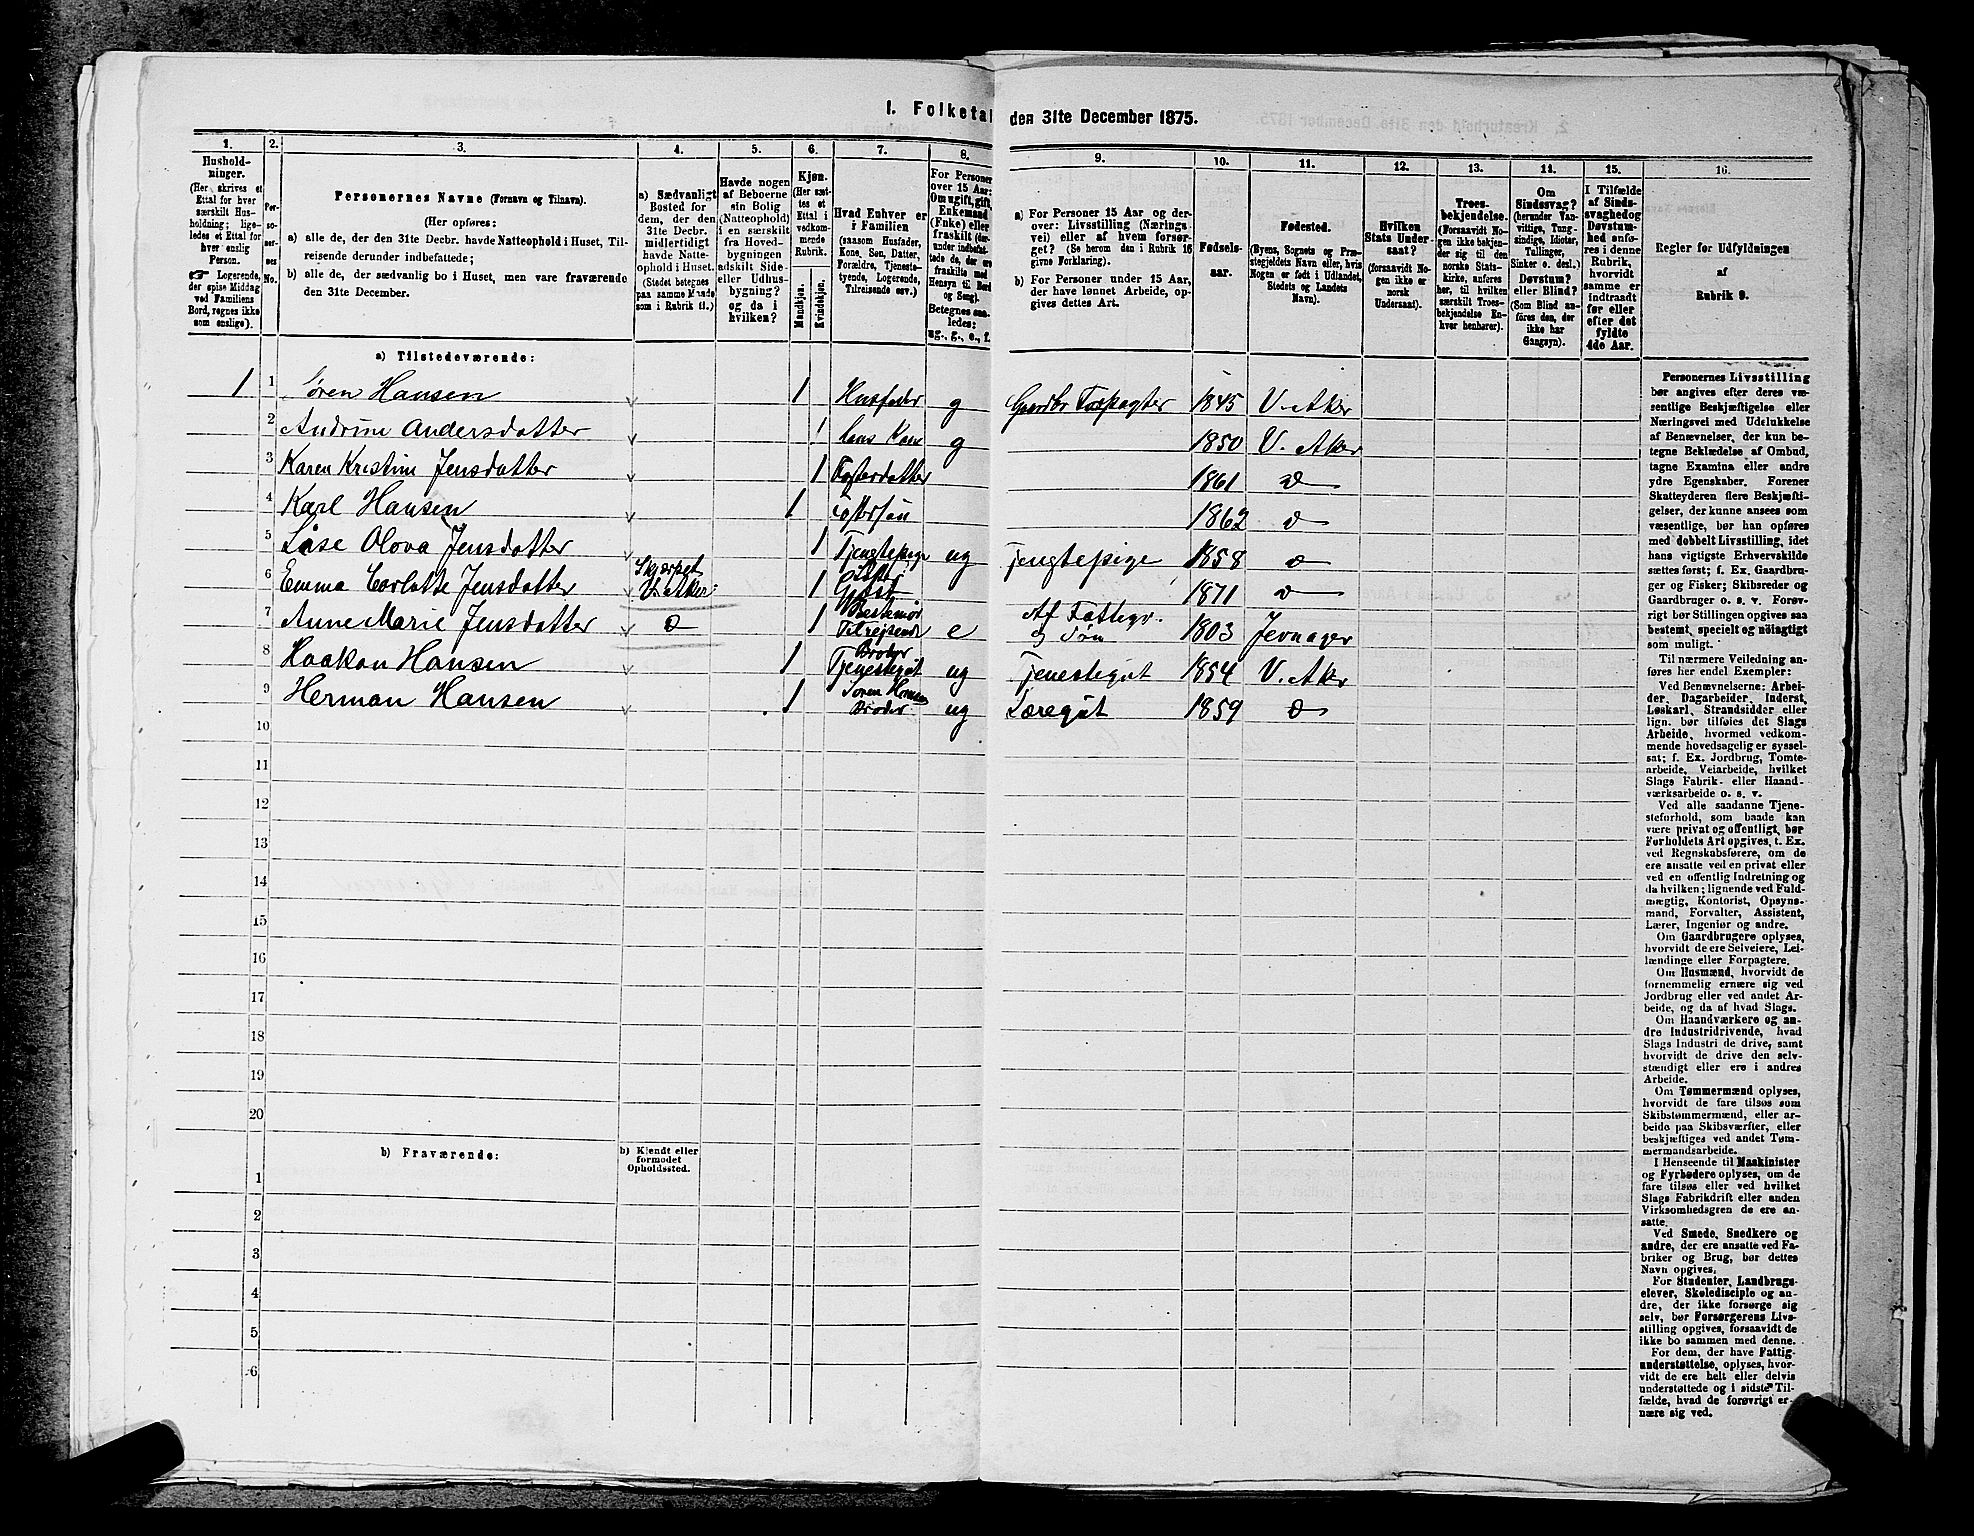 I. Folketal
den 31te December 1875.
1.
Husholdninger.
(Her skrives et
Ettal for hver
særskilt Husholdning; ligeledes
et Ettal for
hver enslig
Person.
Logerende,
der spise Middag
ved Familiens
Bord, regnes ikke
som enslige).
2.
Personernes
No.
3.
Personernes Navne (Fornavn og Tilnavn).
(Her opføres:
a) alle de, der den 31te Decbr. havde Natteophold i Huset, Tilreisende
derunder indbefattede;
b) alle de, der sædvanlig bo i Huset, men vare fraværende
den 31te December.
4.
a) Sædvanligt
Bosted for
dem, der den
31te Decbr.
midlertidigt
havde Natteophold
i Huset.
(Stedet betegnes
paa samme Maade
som i Rubrik 11.)
5.
Havde nogen
af Beboerne
sin Bolig
(Natteophold)
i en særskilt
fra Hovedbygningen
adskilt Side-
eller Udhusbygning?
og da i
hvilken?
6.
Kjøn.
(Her sættes
et
Ettal i
vedkommende
Rubrik.
Mandkjøn.
Kvindekjøn.
7.
Hvad Enhver er
i Familien
(saasom Husfader,
Kone, Søn, Datter,
Forældre, Tjenestetyende,
Logerende,
Tilreisende osv.)
8.
For Personer
over 15 Aar:
Om ugift, gift,
Enkemand
(Enke) eller
fraskilt
Hensyn til Bord
og Seng).
Betegnes saaledes:
ug., g., e., f.
9.
a) For Personer 15 Aar og derover:
Livsstilling (Næringsvei)
eller af hvem forsørget?
(Se herom den i Rubrik 16
givne Forklaring).
b) For Personer under 15 Aar,
der have lønnet Arbeide, opgives
dettes Art.
10.
Fødselsaar.
11.
Fødested.
(Byens, Sognets og Præstegjeldets
Navn eller, hvis
Nogen er født i Udlandet,
Stedets og Landets
Navn).
12.
Hvilken
Stats Undersaat?
(forsaavidt Nogen
ikke er
norsk
Undersaat).
13.
Troesbekjendelse.
(Forsaavidt Nogen
ikke bekjender
sig til den
norske Statskirke,
anføres
her, til hvilken
særskilt Troesbekjendelse
Enhver
henhører).
14.
Om
Sindssvag?
(herunder Vanvittige,
Tungsindige,
Idioter,
Tullinger,
Sinker o. desl.)
Døvstum?
eller Blind?
(Som Blind anføres
den, der
ikke har
Gangsyn).
15.
I Tilfælde
af Sindssvaghed
og
Døvstumhed
anføres
i denne
Rubrik,
hvorvidt
samme er
indtraadt
før eller
efter det
fyldte
4de Aar.
16.
Regler for Udfyldningen
af
Rubrik 9.
a) Tilstedeværende:
1 1 Søren Hansen 1 Husfader g Gaardbr Forpagter 1845 V. Aker
2 Andrine Andersdatter 1 hans Kone g 1850 V. Aker
3 Karen Kristine Jensdatter 1 Fosterdatter 1861 do
4 Karl Hansen 1 Fostersøn 1862 do
5 Lise Olova Jensdatter 1 Tjenstepige ug Tjenstepige 1858 do
6 Emma Corlotte Jensdatter V. Aker 1 Gjæst 1871 do
7 Anne Marie Jensdatter do 1 Bestemor
Tilreisende e Af Fattigv.
og Søn 1803 Jevnager
8 Haakon Hansen 1 Broder
Tjenestegut ug Tjenestegut 1854 V. Aker
9 Herman Hansen 1 Søren Hansens
Broder ug Læregut 1859 do
10
11
12
13
14
15
16
17
18
19
20
b) Fraværende:
b) Kjendt eller
formodet
Opholdssted.
1
2
3
4
5
6
Personernes Livsstilling
bør angives efter deres væsentlige
Beskjæftigelse eller
Næringsvei med Udelukkelse
af Benævnelser, der kun betegne
Beklædelse af Ombud,
tagne Examina eller andre
ydre Egenskaber. Forener
Skatteyderen flere Beskjæftigelser,
der kunne ansees som
væsentlige, bør han opføres
med dobbelt Livsstilling, idet
hans vigtigste Erhvervskilde
sættes først; f. Ex. Gaardbruger
og Fisker; Skibsreder og
Gaardbruger o. s. v. Forøvrigt
bør Stillingen opgives saa
bestemt, specielt og nøiagtigt
som muligt.
Til nærmere Veiledning anføres
her endel Exempler:
Ved Benævnelserne: Arbeider,
Dagarbeider, Inderst,
Løskarl, Strandsidder eller
lign. bør tilføies det Slags
Arbeide, hvormed vedkommende
hovedsagelig er sysselsat;
f. Ex. Jordbrug, Tomtearbeide,
Veiarbeide, hvilket
Slags Fabrik- eller Haandværksarbeide
o. s. v.
Ved alle saadanne Tjenesteforhold,
som baade kan
være privat og offentligt, bør
Forholdets Art opgives, t. Ex.
ved Regnskabsførere, om de
ere ansatte ved en privat eller
ved en offentlig Indretning og
da hvilken; lignende ved Fuldmægtig,
Kontorist, Opsynsmand,
Forvalter, Assistent,
Lærer, Ingeniør og andre.
Om Gaardbrugere oplyses,
hvorvidt de ere Selveiere, Leilændinge
eller Forpagtere.
Om Husmænd, hvorvidt de
fornemmelig ernære sig ved
Jordbrug eller ved andet Arbeide,
og da af hvad Slags.
Om Haandværkere og andre
Industridrivende, hvad
Slags Industri de drive, samt
hvorvidt de drive den selvstændigt
eller ere i andres
Arbeide.
Om Tømmermænd oplyses,
hvorvidt de fare tilsøs som
Skibstømmermænd, eller arbeide
paa Skibsværfter, eller
beskjæftiges ved andet Tømmermandsarbeide.
I Henseende til Maskinister
og Fyrbødere oplyses, om de
fare tilsøs eller ved hvilket
Slags Fabrikdrift eller anden
Virksomhedsgren de ere ansatte.
Ved Smede, Snedkere og
andre, der ere ansatte ved Fabriker
og Brug, bør dettes
Navn opgives.
For Studenter, Landbrugselever,
Skoledisciple og andre,
der ikke forsørge sig
selv, bør Forsørgerens Livsstilling
opgives, forsaavidt de
ikke bo sammen med denne.
For dem, der have Fattigunderstøttelse,
oplyses, hvorvidt
de ere helt eller delvis
understøttede og i sidste Tilfælde,
hvad de forøvrigt ernære
sig ved.